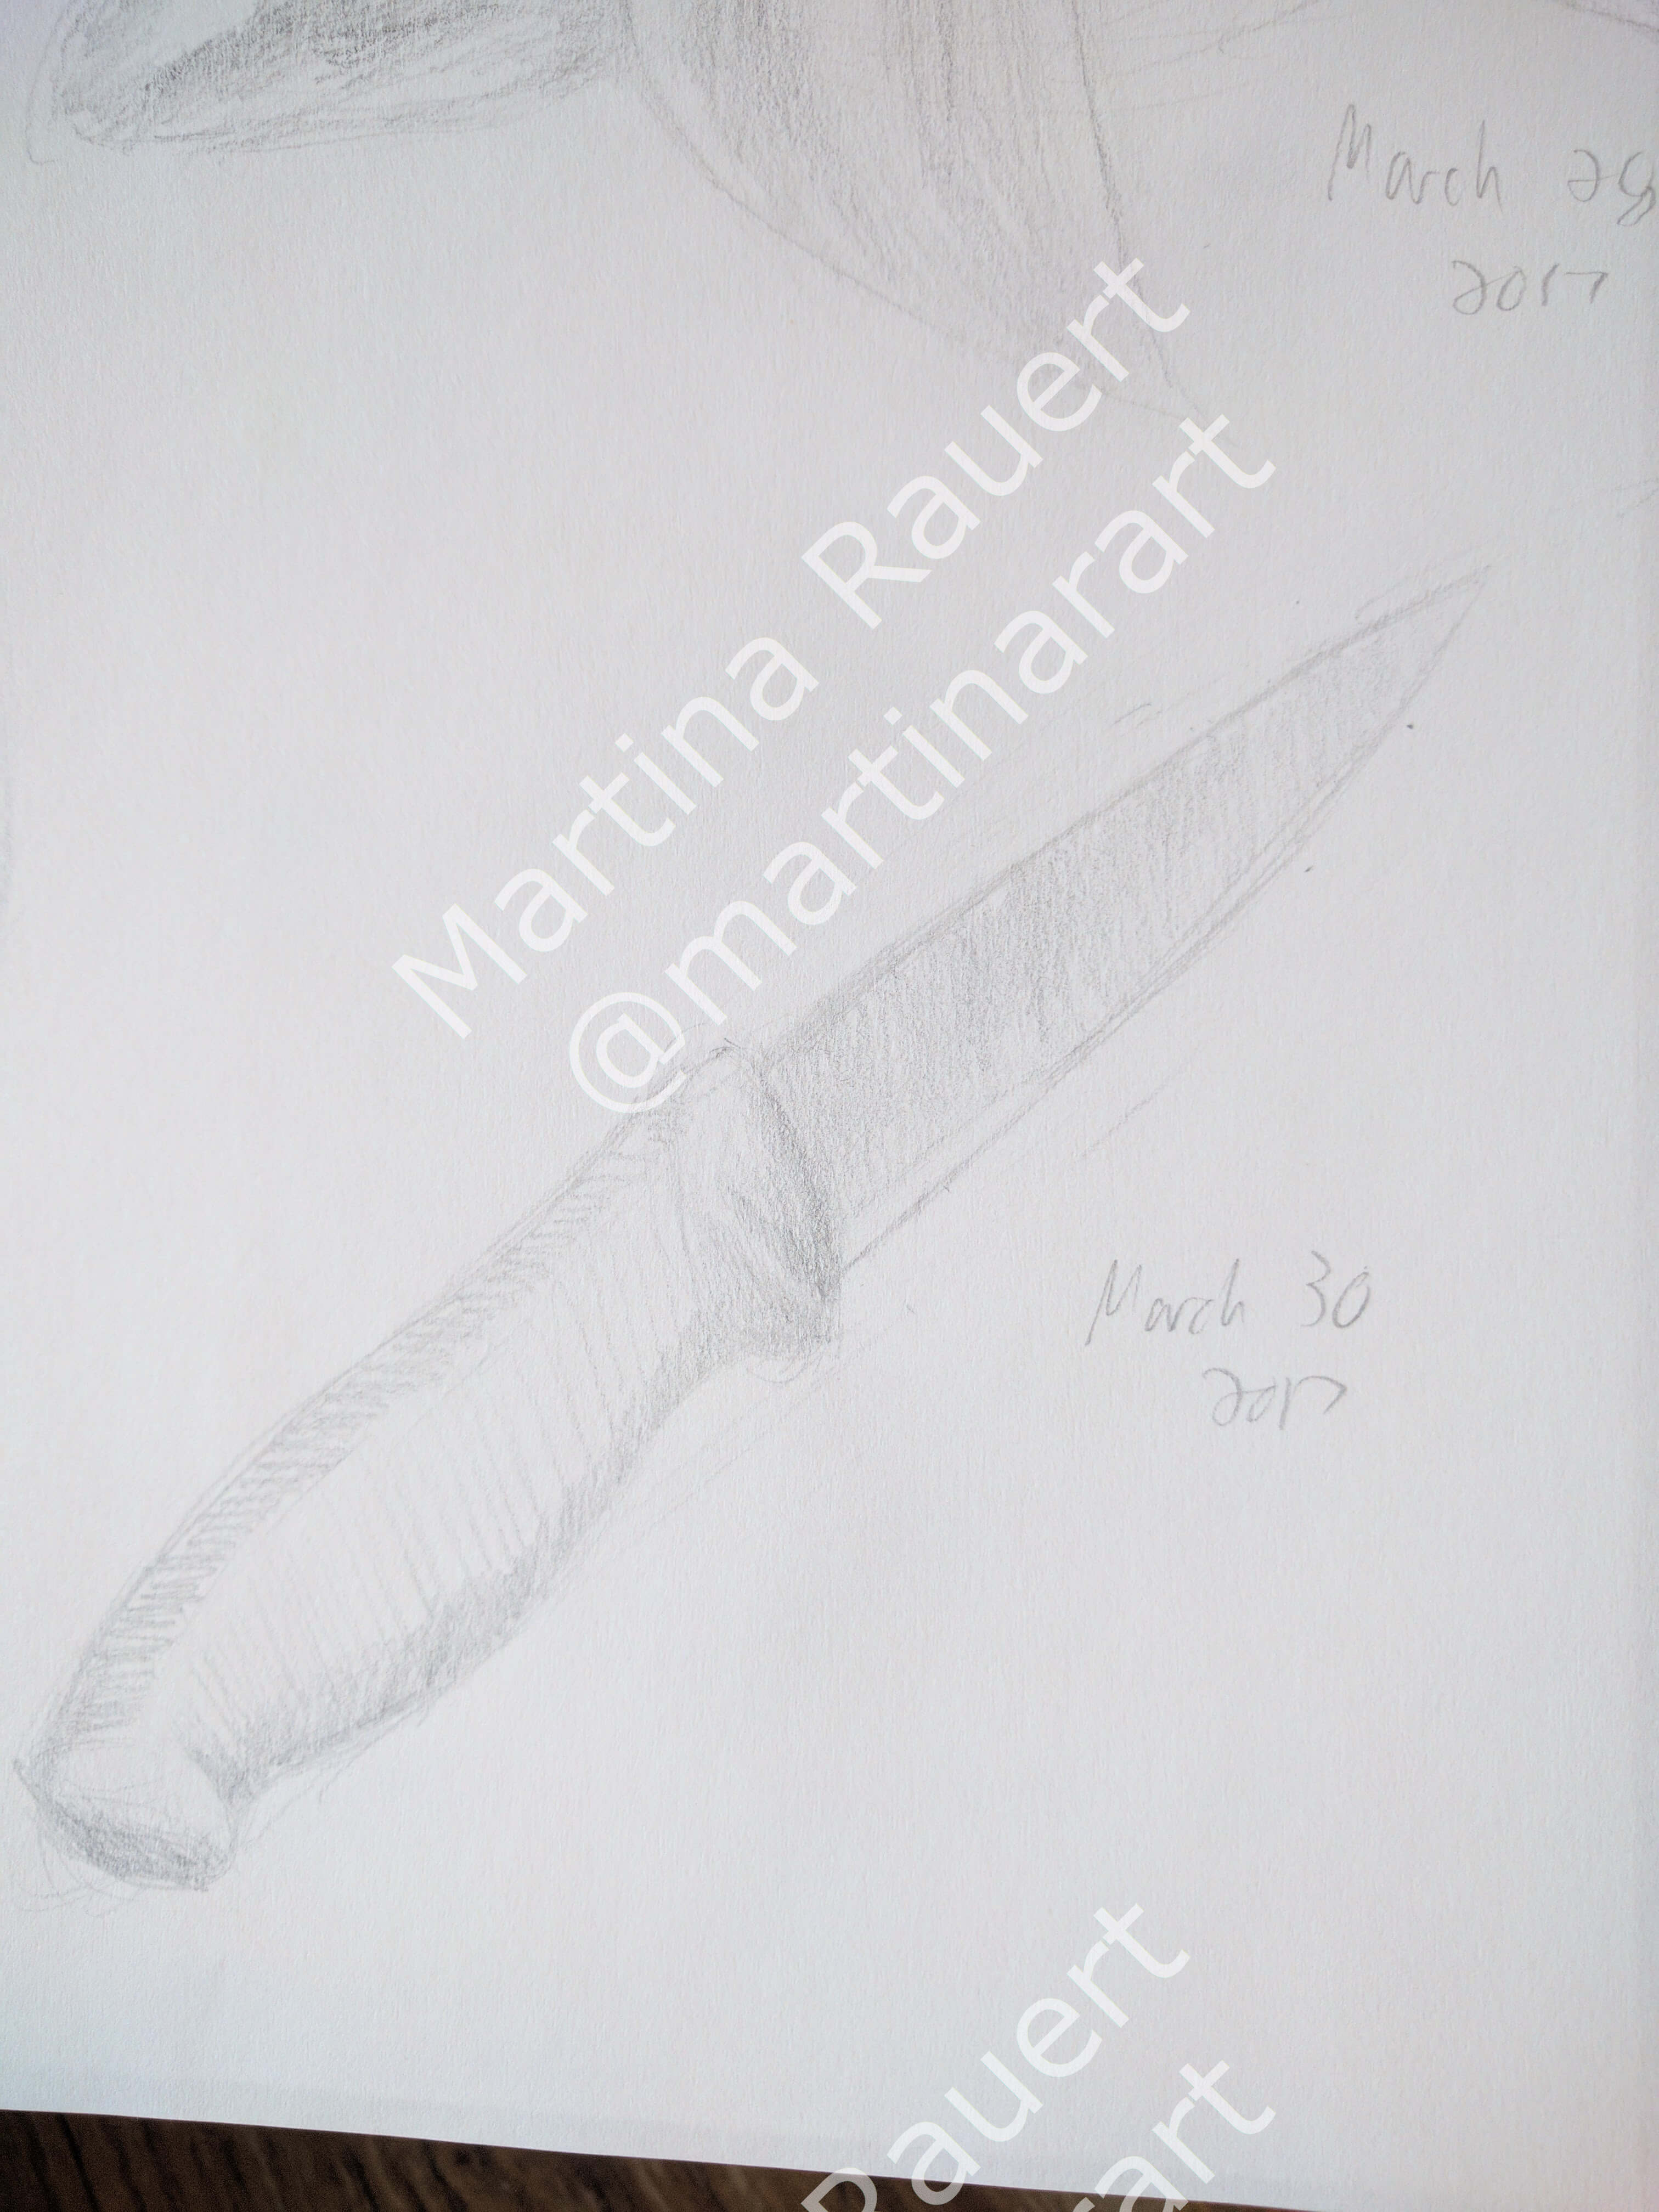 March 28
2017
Martina Rauert
@martinarart
March 30
2017
Rauert
rart